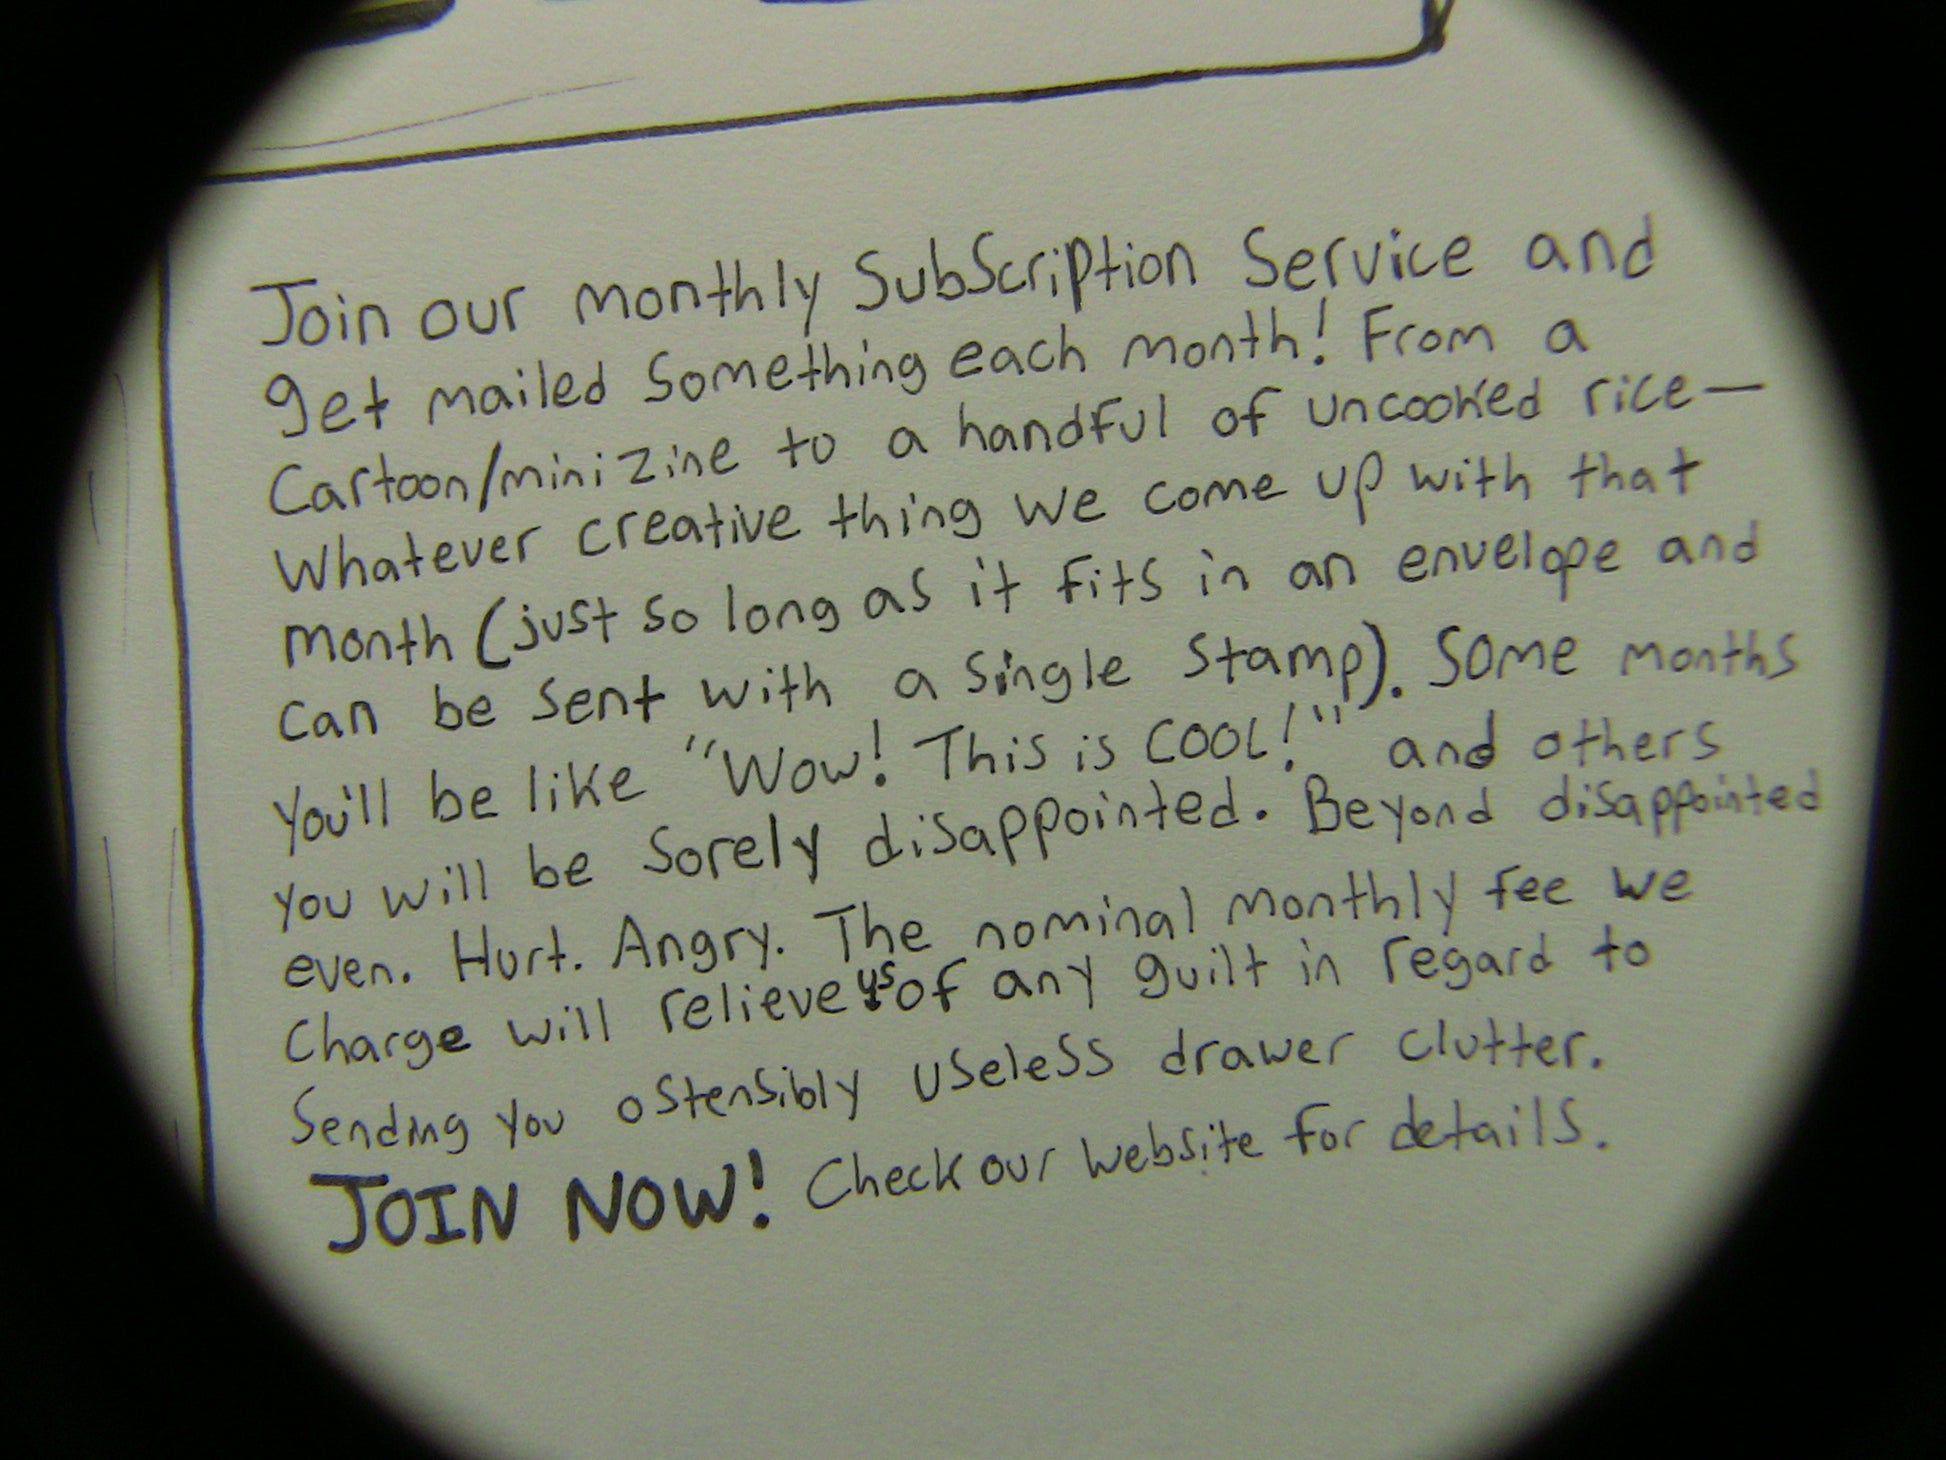 Join our monthly Subscription Service and
get mailed Something each month! From a
Cartoon/mini zine to a handful of uncooked rice—
Whatever creative thing we come up with that
month (just so long as it fits in an envelope and
can be sent with a single stamp). Some months
You'll be like "Wow! This is COOL!" and others
you will be sorely disappointed. Beyond disappointed
even. Hurt. Angry. The nominal monthly fee we
Charge will relieve us of any guilt in regard to
Sending you ostensibly useless drawer clutter.
JOIN NOW! Check our website for details.